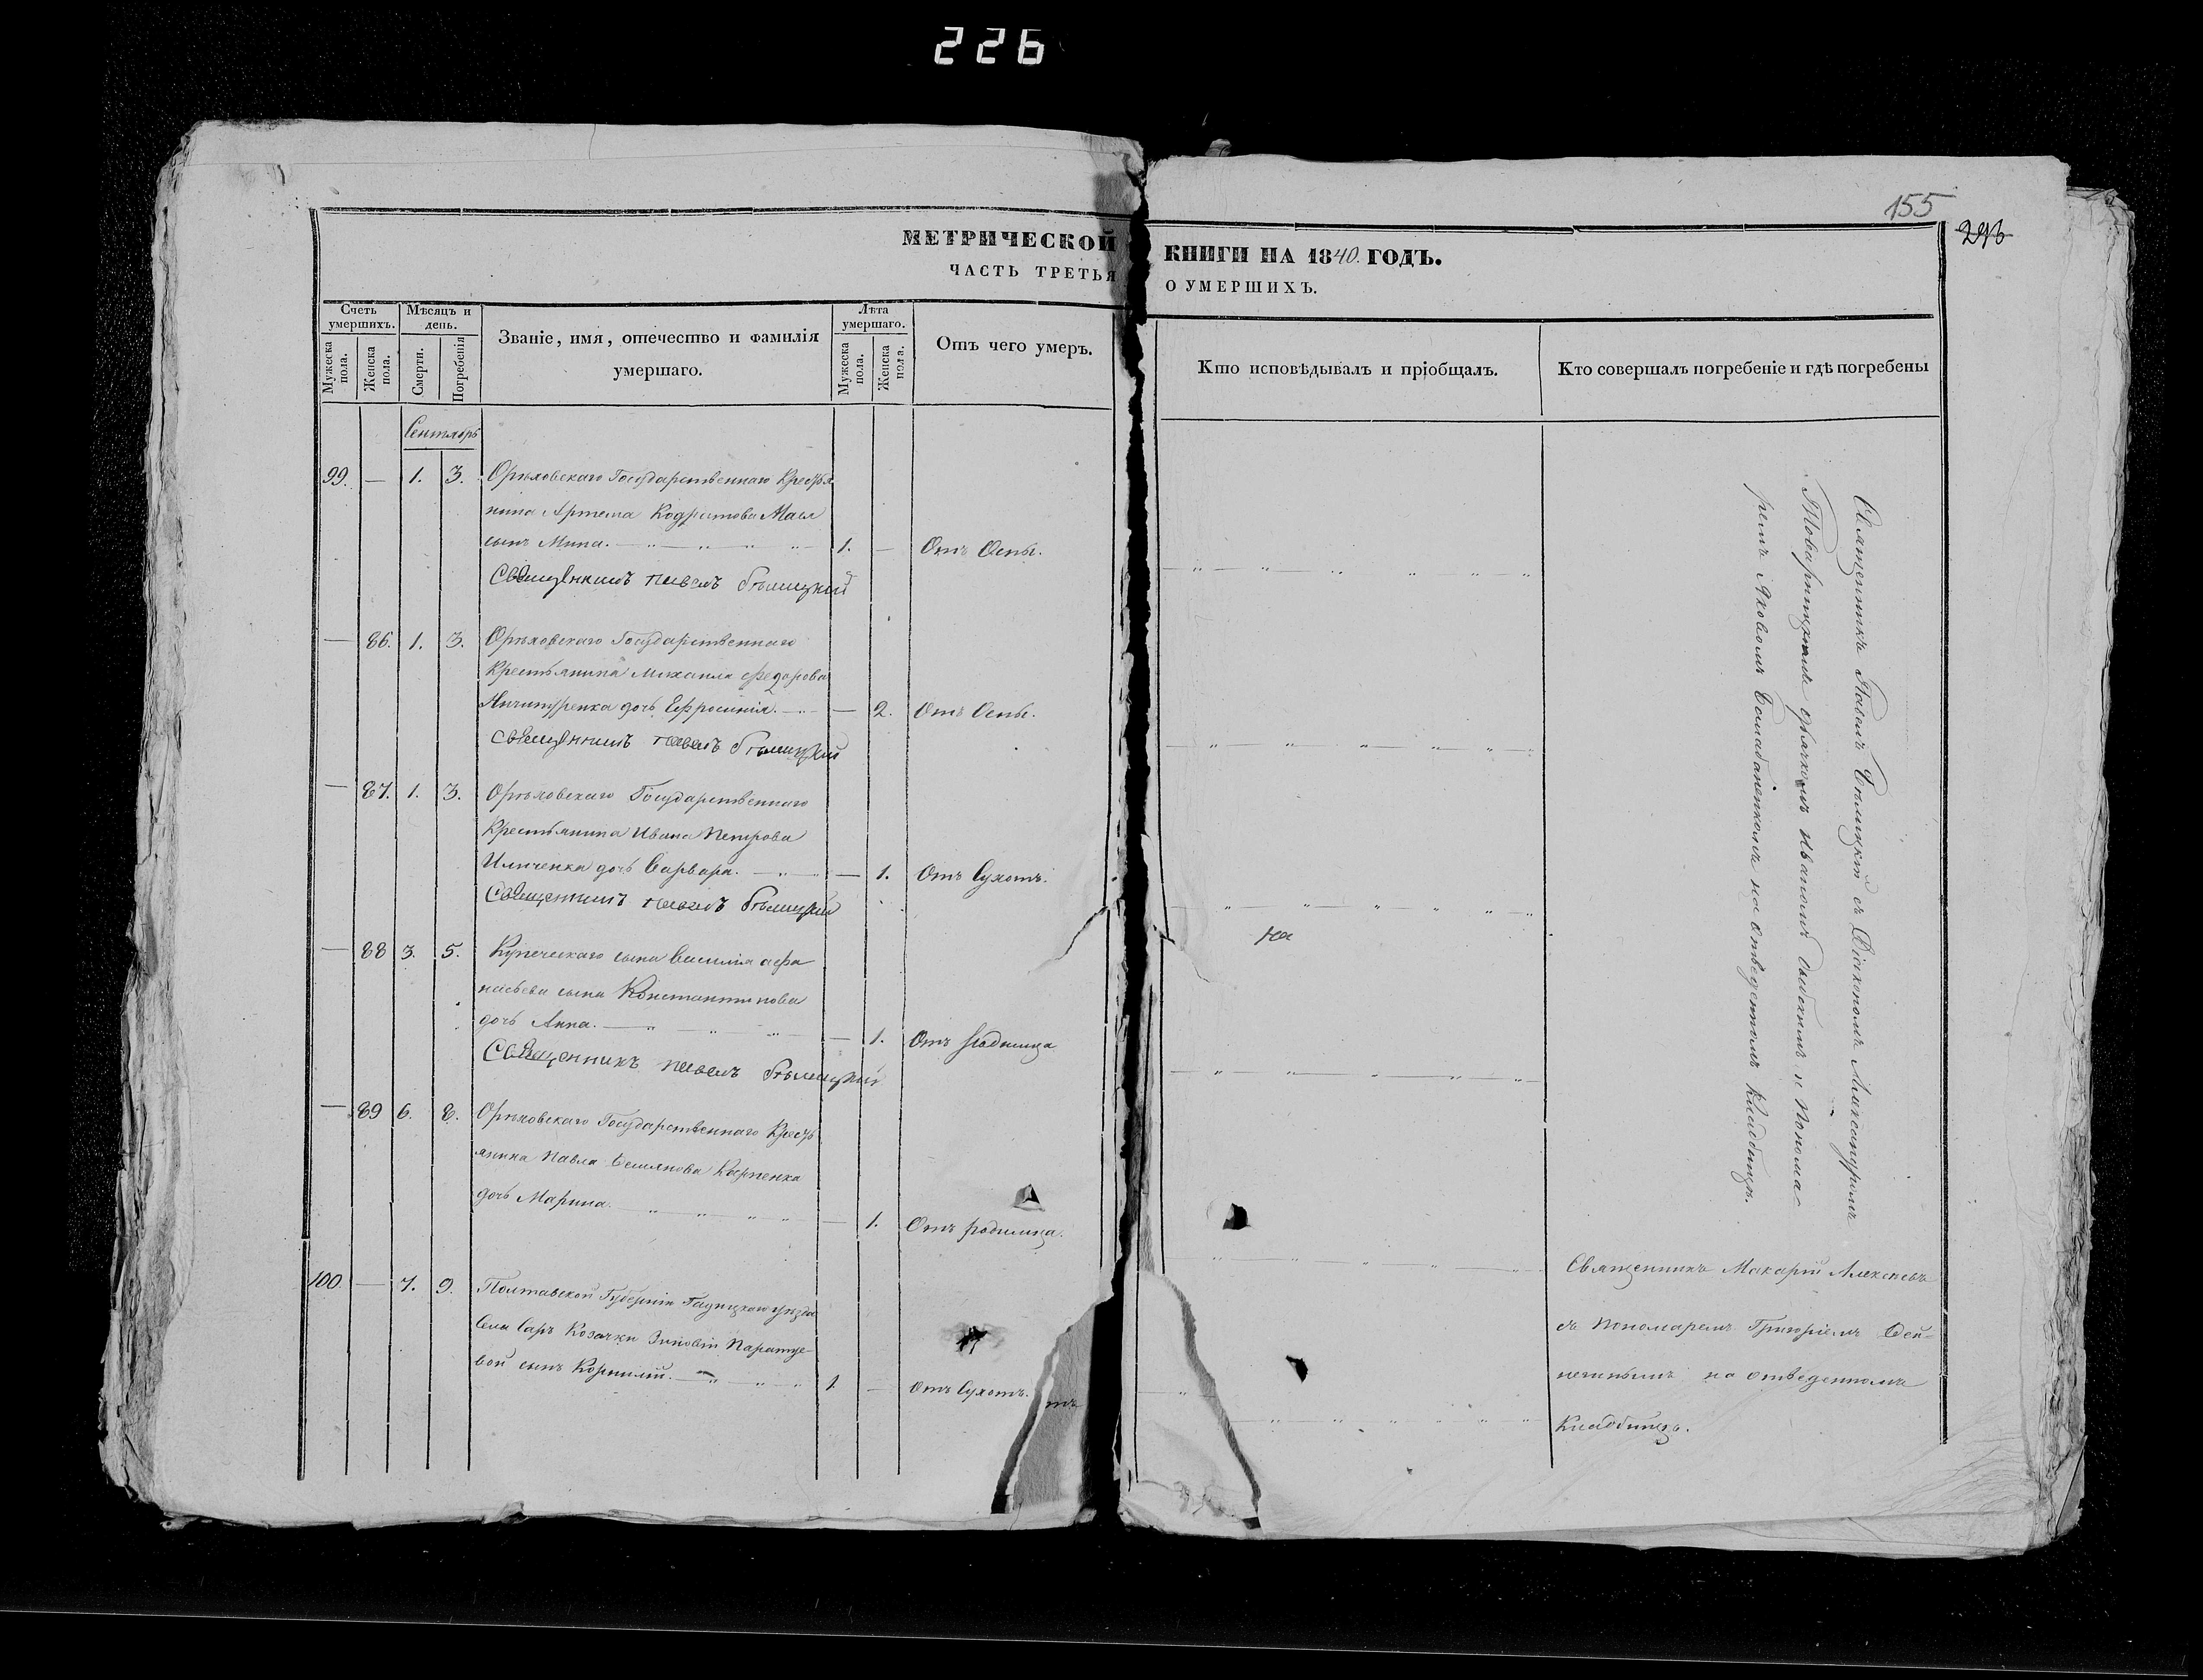 226
155
293
МЕТРИЧЕСКОЙ КНИГИ НА 1840. ГОДЪ.
ЧАСТЬ ТРЕТЬЯ О УМЕРШИХЪ.
Счетъ умершихъ.
Мужеска пола.
Женска пола.
Мѣсяцъ и день.
Смерти.
Погребенія
Званіе, имя, отечество и фамилія умершаго.
Лѣта умершаго.
Мужеска пола.
Женска пола.
Отъ чего умеръ.
Кто исповѣдывалъ и пріобщалъ.
Кто совершалъ погребеніе и гдѣ погребены
Сентябрь
99. — 1. 3. Орѣховскаго Государственнаго Крестья
нина Артема Кодратова
сынъ Мина. 1. — Отъ Оспы.
Священникъ Павелъ Бѣлицкий
— 86. 1. 3. Орѣховскаго Государственнаго
Крестьянина Михаила Федорова
дочь Ефросинія. — 2. Отъ Оспы.
Священникъ Павелъ Бѣлицкий
— 87. 1. 3. Орѣховскаго Государственнаго
Крестьянина Ивана Петрова
Ильченка дочь Варвара. — 1. Отъ Сухотъ.
Священникъ Павелъ Бѣлицкий
— 88 3. 5. Купеческаго сына Василія Афа
насьева сына Константинова
дочь Анна. — 1. Отъ Родимца
Священникъ Павелъ Бѣлицкий
— 89 6. 8. Орѣховскаго Государственнаго Кресть
янина Павла Демянова Карпенка
дочь Марина. — 1. Отъ родимца.
100. — 7. 9. Полтавской Губерніи Гадяцкаго уѣзда
Села Саръ Козачки Зиновіи
сынъ Корнилій. 1. — Отъ Сухотъ.
Священникъ Павелъ Бѣлицкий съ Діакономъ Александромъ
Товарницкимъ дьячкомъ Иваномъ и Понома
ремъ Яковомъ Балабаненкомъ на отведенномъ Кладбищѣ.
Священникъ Макарій Алексѣевъ
съ Пономаремъ Григоріемъ Дей-
на отведенномъ
Кладбищѣ.